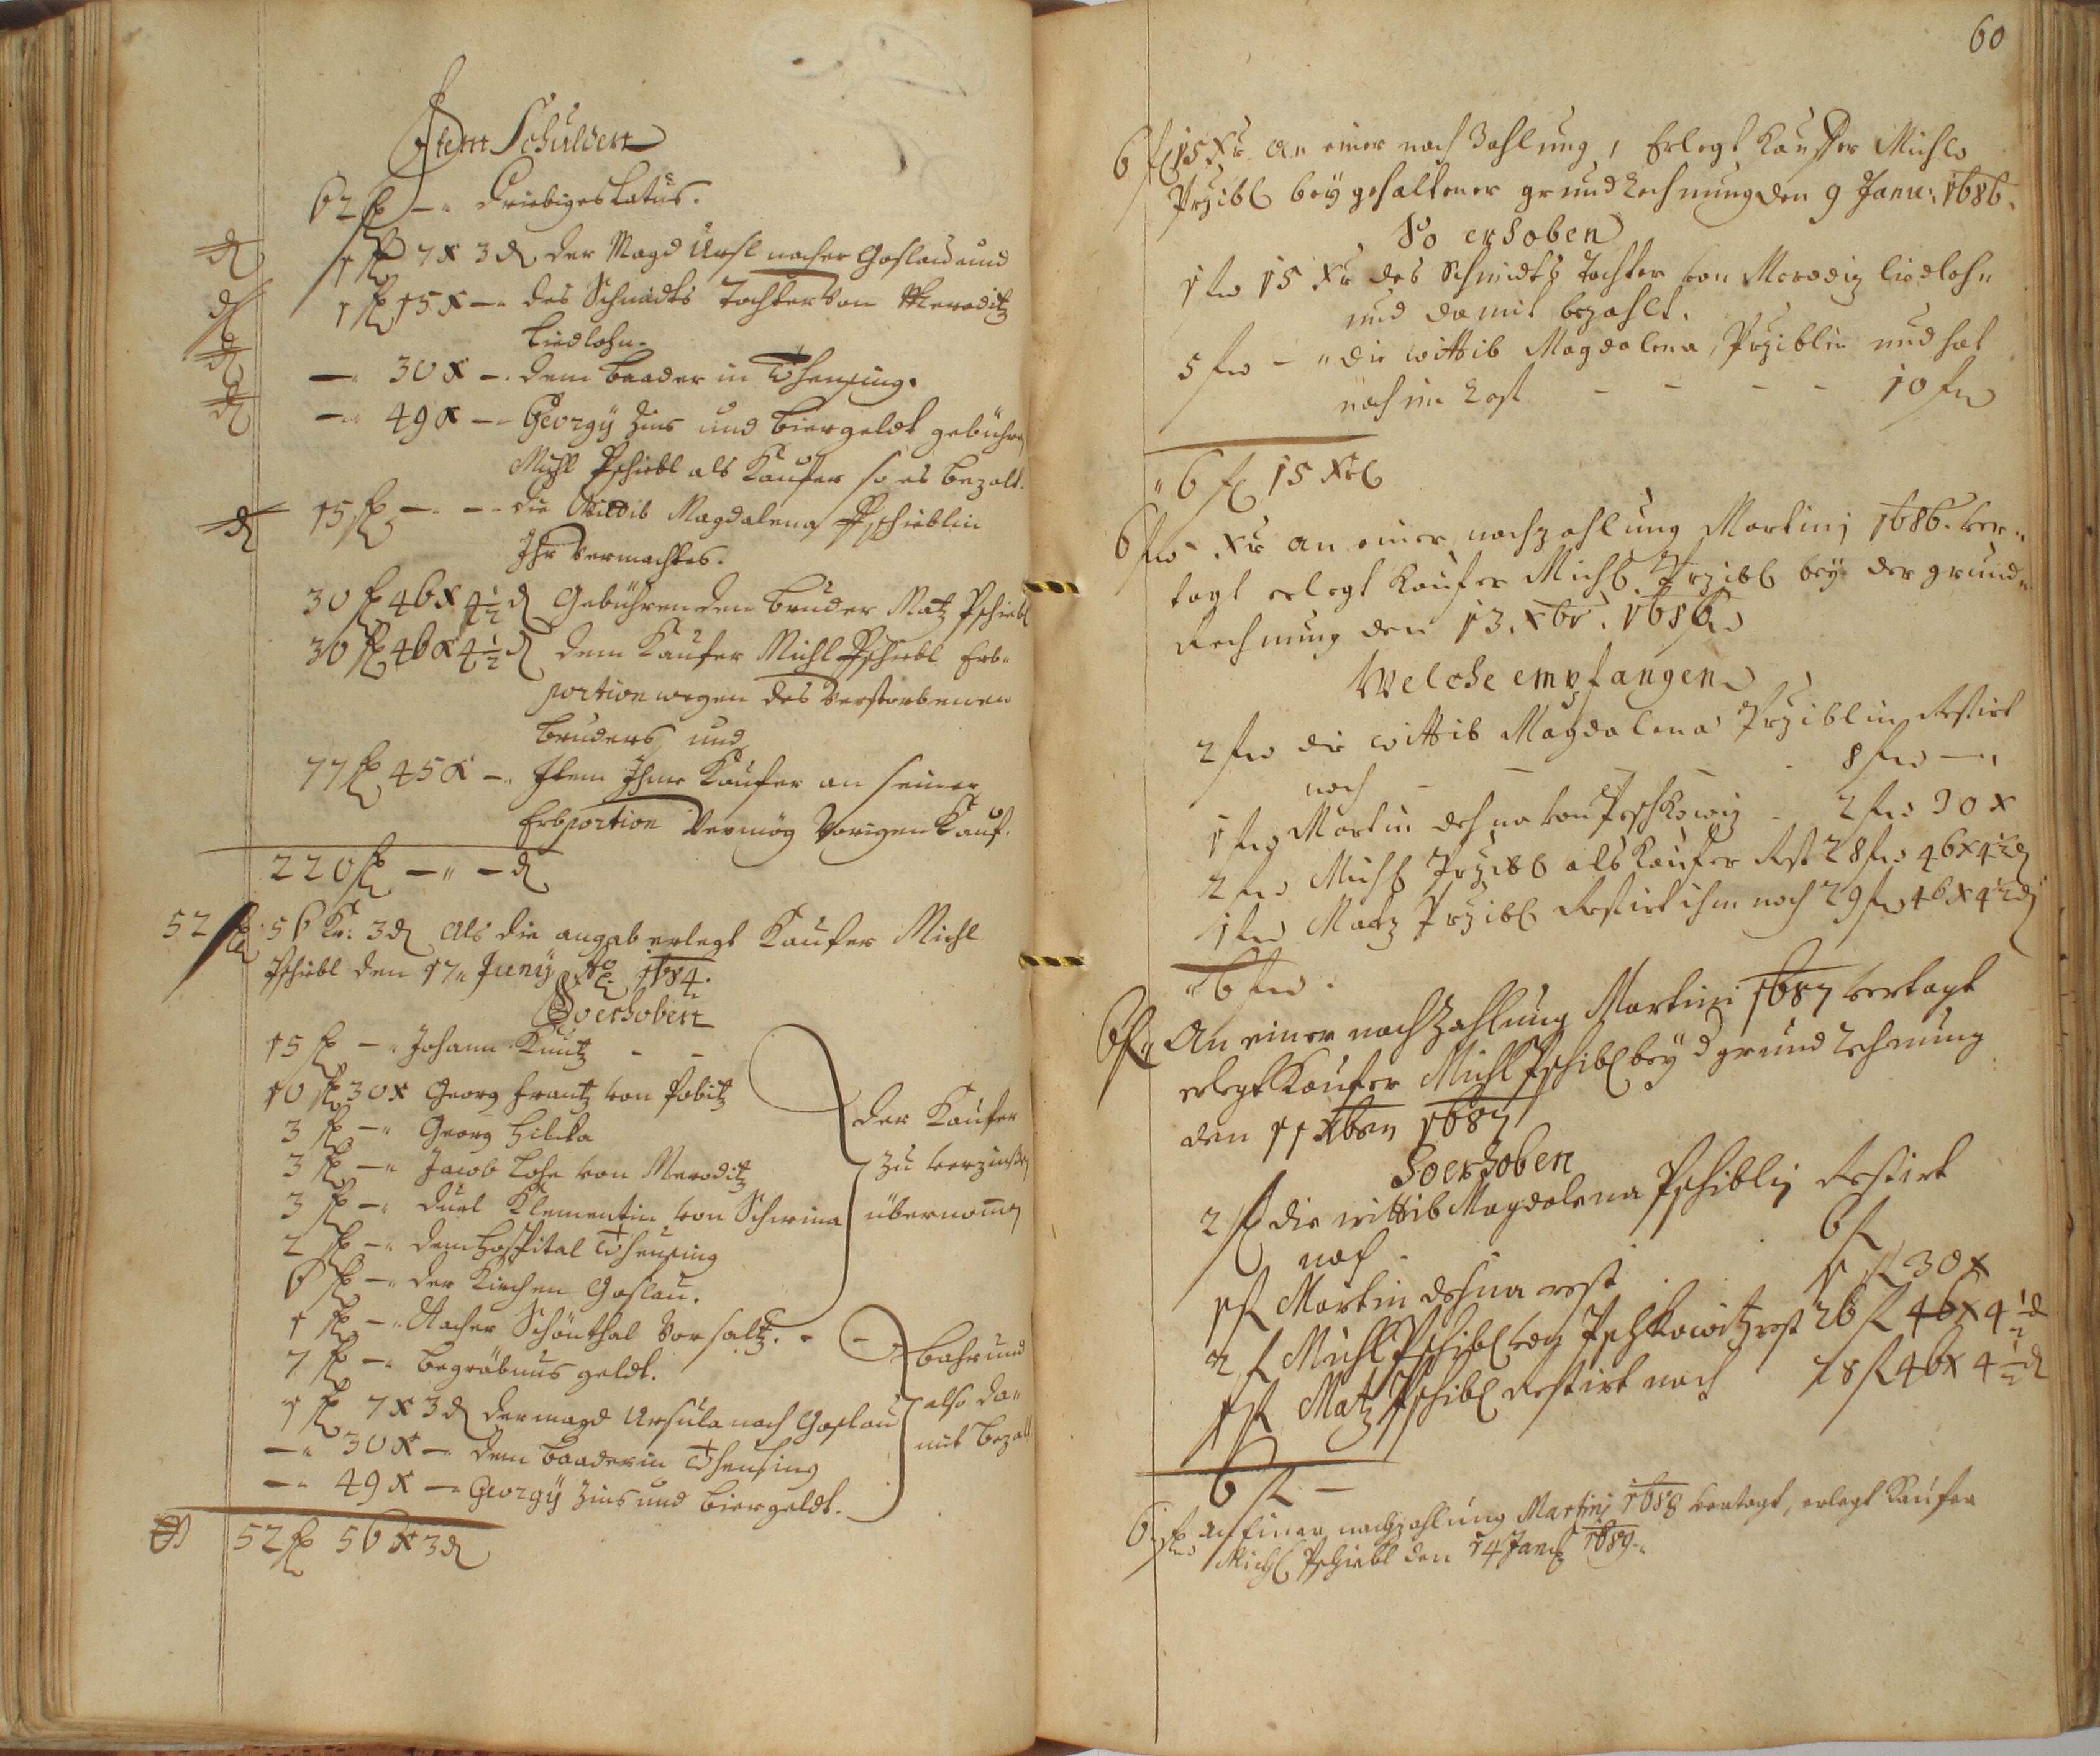 Item Schulden
62 fl — " Driebiges Latus.
1 fl 7 x 3 d der Magd Ursl nacher Goslau und
1 fl 15 x — " des Schmidts Tochter von Meroditz
Liedlohn.
— " 30 x — " dem Baader in Theusing.
— " 49 x — " Georgÿ Zins und Biergeldt gebühren
Michl Pschiebl als Kaufer so es bezalt.
15 fl — " — " die Wittib Magdalena Pschieblin
Ihr Vermachtes.
30 fl 46 x 4½ d Gebühren den Bruder Matz Pschiebl
30 fl 46 x 4½ d dem Kaufer Michl Pschiebl Erb-
portion wegen des verstorbenen
Bruders und
77 fl 45 x — " Item Ihme Kaufer an seiner
Erbportion Vermög Vorigen Kauf.
220 fl — " — d
52 fl 56 Kr: 3 d Als die angab erlegt Kaufer Michl
Pschiebl den 17 " Junÿ Ao 1684.
So erhoben
15 fl — " Johann Kuntz - -
10 fl 30 x Georg Frantz von Pobitz
3 fl — " Georg Hilcka
3 fl — " Jacob Lohe von Meroditz
3 fl — " Duel Klementin von Schwina
2 fl — " dem Hospital Theusing
6 fl — " der Kirchen Goslau.
der Kaufer
zu verzinsen
übernomen
1 fl — " Nacher Schönthal Vor saltz. - —
7 fl — " Begräbnus geldt.
1 fl 7 x 3 d der magd Ursula nach Goslau
— " 30 x — " dem Baader in Theusing
— " 49 x — " Georgÿ Zins und Biergeldt.
Bahr und
also da-
mit bezalt
52 fl 56 x 3 d
60
6 fl 15 Xr An einer nach Zahlung, Erlegt Kauffer Michl
Przibl beÿ gehaltener grund Rechnung den 9 Janu: 1686.
So erhoben
1 fl 15 Xr des Schmidts Tochter von Merodiz liedlohn
und damit bezahlt.
5 fl — " die wittib Magdalena Przibliin und hat
noch im Rest - - - - 10 fl
" 6 fl 15 Xr
6 fl - Xr an einer nachzahlung Martini 1686. ver-
tagt erlegt Kaufer Michl Przibl beÿ der grund-
Rechnung den 13. Xbr: 1686
Welche empfangen
2 fl die wittib Magdalena Przibliin Restirt
noch - - - - 8 fl — "
1 fl Martin desna von Peschkowiz - 2 fl 30 x
2 fl Michl Przibl als Kaufer Rest 28 fl 46 x 4½ d
1 fl Matz Przibl Restirt ihm noch 29 fl 46 x 4½ d
" 6 fl.
6 fl " An einer nach Zahlung Martini 1687 vertagt
erlegt Kaufer Michl Pschibl beÿ d grund Rechnung
den 11 Xbris 1687
So erhoben
2 fl die wittib Magdalena Pschiblin Restirt
noch - 6 fl
1 fl Martin desna rest 1 fl 30 x
2 fl Michl Pschibl von Pschkowitz rest 26 fl 46 x 4½ d
1 fl Matz Pschibl Restirt noch 28 fl 46 x 4½ d
6 fl —
6 fl an einer nachzahlung Martini 1688 vertagt, erlegt Kaufer
Michl Pschiebl den 14 Janu: 1689.